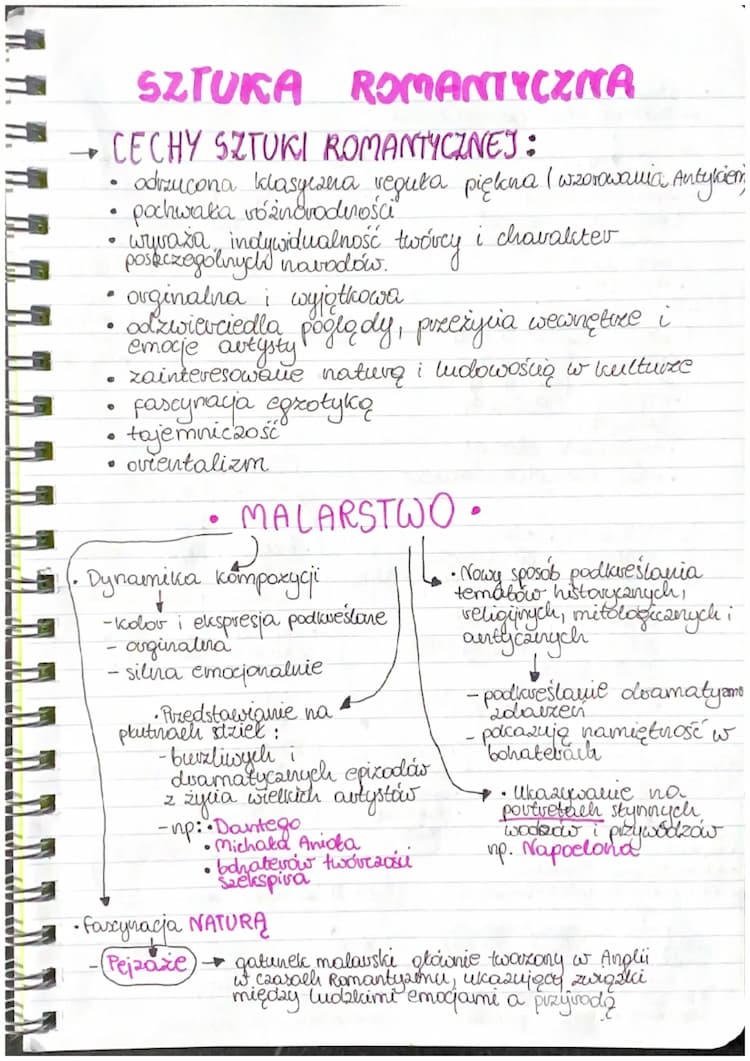 SZTUKA ROMANTYCZNA
→ CECHY SZTUKI ROMANTYCZNEJ:
• odrzucona klasyczna reguła piękna (wzorowania Antykiem)
• pochwała różnorodności
• wyraża indywidualność twórcy i charakter
poszczególnych narodów.
• orginalna i wyjątkowa
• odzwierciedla poglądy, przeżycia wewnętrze i
emocje artysty
• zainteresowanie naturą i ludowością w kulturze
• fascynacja egzotyką
• tajemniczość
• orientalizm
• MALARSTWO •
• Dynamika kompozycji
- kolor i ekspresja podkreślane
- orginalna
- silna emocjonalnie
• Przedstawianie na
płutnach dzieł:
- burzliwych i
dramatycznych epizodów
z życia wielkich artystów
- np: • Dantego
• Michała Anioła
• bohaterów twórczości
Szekspira
• Nowy sposób podkreślania
tematów historycznych,
religijnych, mitologicznych i
antycznych
- podkreślanie dramatyzmu
zdarzeń
- pokazują namiętność w
bohaterach
• Ukazywanie na
portretach słynnych
wodzów i przywódzów
np. Napoelona
• fascynacja NATURĄ
- Pejzaże → gatunek malarski głównie tworzony w Anglii
w czasach Romantyzmu, ukazującej związki
między ludzkimi emocjami a przyrodą